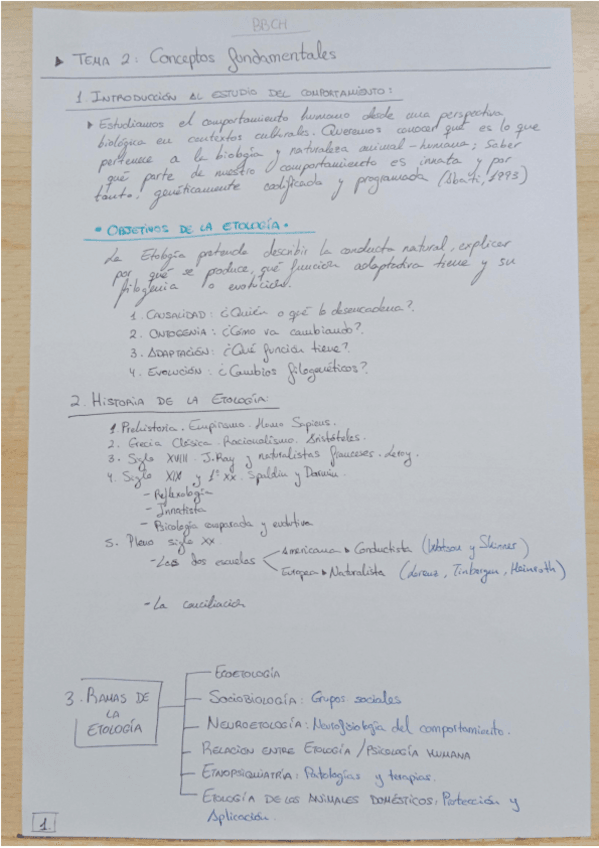 BBCH
▸ TEMA 2: Conceptos fundamentales
1. INTRODUCCIÓN AL ESTUDIO DEL COMPORTAMIENTO:
▸ Estudiamos el comportamiento humano desde una perspectiva
biológica en contextos culturales. Queremos conocer qué es lo que
pertenece a la biología y naturaleza animal-humana; Saber
qué parte de nuestro comportamiento es innata y por
tanto, genéticamente codificada y programada (Sbati, 1993)
• OBJETIVOS DE LA ETOLOGÍA •
La Etología pretende describir la conducta natural, explicar
por qué se produce, qué función adaptativa tiene y su
filogenia o evolución.
1. CAUSALIDAD: ¿Quién o qué lo desencadena?.
2. ONTOGENIA: ¿Cómo va cambiando?.
3. ADAPTACIÓN: ¿Qué función tiene?.
4. EVOLUCIÓN: ¿Cambios filogenéticos?.
2. HISTORIA DE LA ETOLOGÍA:
1. Prehistoria. Empirismo. Homo Sapiens.
2. Grecia Clásica. Racionalismo. Aristóteles.
3. Siglo XVIII. J. Ray y naturalistas franceses. Leroy.
4. Siglo XIX y 1º XX. Spaldin y Darwin.
- Reflexología
- Innatista
- Psicología comparada y evolutiva
5. Pleno siglo XX.
- Las dos escuelas
Americana ▸ Conductista (Watson y Skinner)
Europea ▸ Naturalista (Lorenz, Tinbergen, Heinroth)
- La conciliación
3. RAMAS DE LA ETOLOGÍA
ECOETOLOGÍA
SOCIOBIOLOGÍA: Grupos sociales
NEUROETOLOGÍA: Neurofisiología del comportamiento.
RELACION ENTRE ETOLOGÍA / PSICOLOGÍA HUMANA
ETNOPSIQUIATRÍA: Patologías y terapias.
ETOLOGÍA DE LOS ANIMALES DOMÉSTICOS: Protección y
Aplicación.
1.